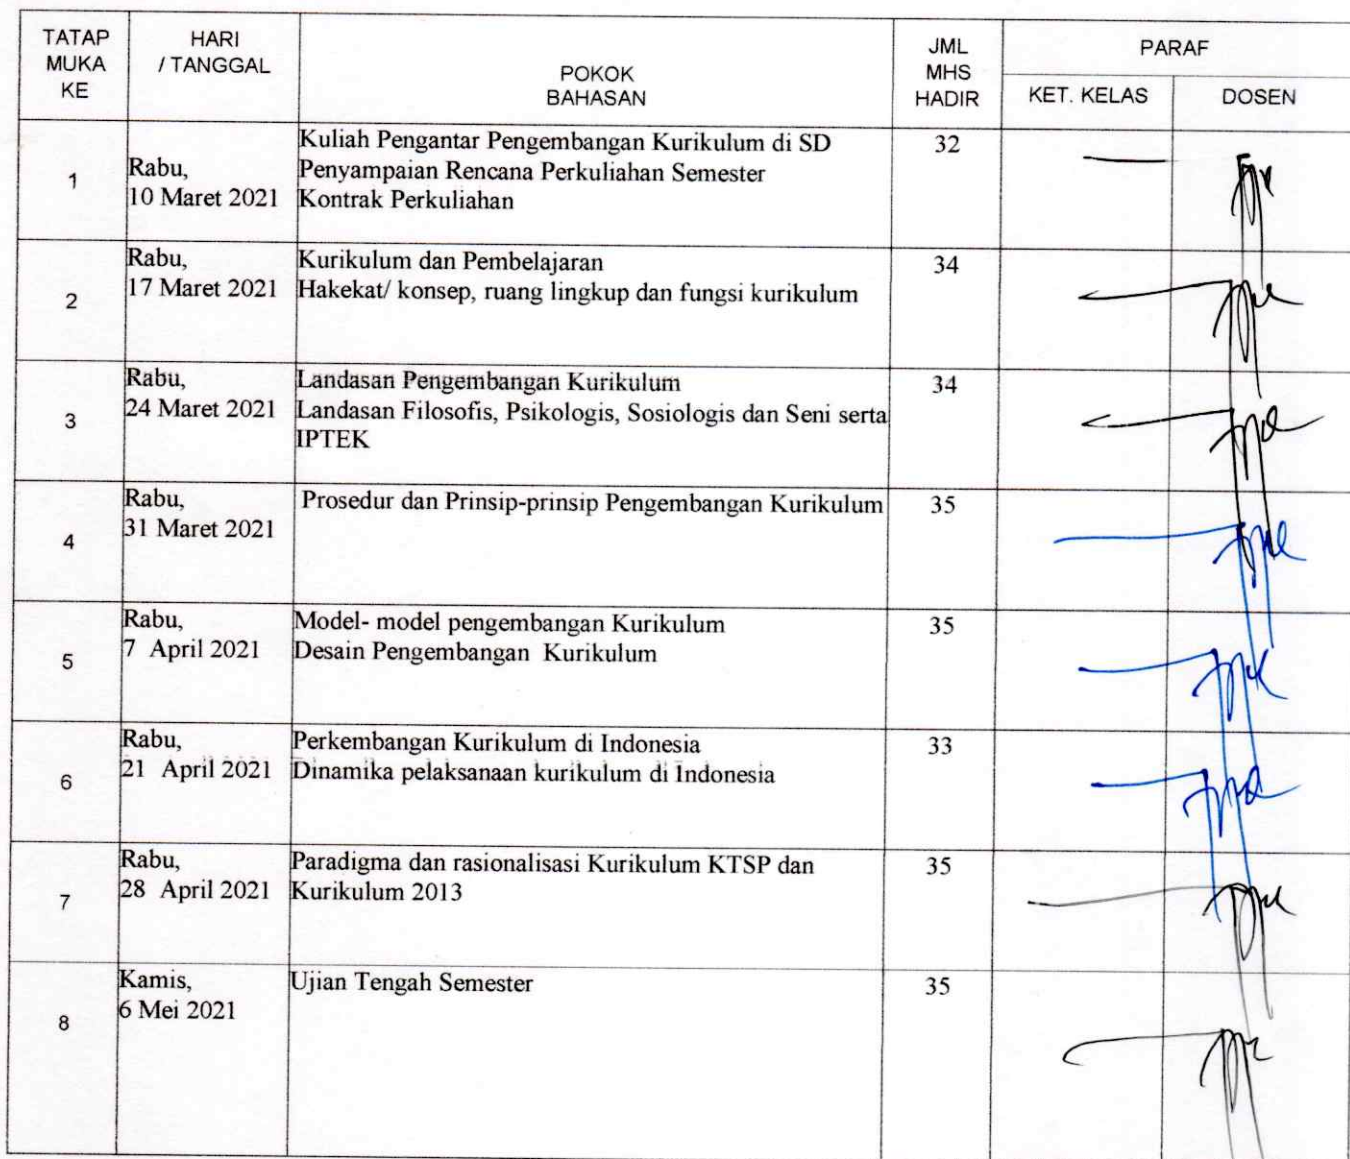 TATAP MUKA KE
HARI / TANGGAL
POKOK BAHASAN
JML MHS HADIR
PARAF
KET. KELAS
DOSEN
1
Rabu,
10 Maret 2021
Kuliah Pengantar Pengembangan Kurikulum di SD
Penyampaian Rencana Perkuliahan Semester
Kontrak Perkuliahan
32
2
Rabu,
17 Maret 2021
Kurikulum dan Pembelajaran
Hakekat/ konsep, ruang lingkup dan fungsi kurikulum
34
3
Rabu,
24 Maret 2021
Landasan Pengembangan Kurikulum
Landasan Filosofis, Psikologis, Sosiologis dan Seni serta
IPTEK
34
4
Rabu,
31 Maret 2021
Prosedur dan Prinsip-prinsip Pengembangan Kurikulum
35
5
Rabu,
7 April 2021
Model- model pengembangan Kurikulum
Desain Pengembangan Kurikulum
35
6
Rabu,
21 April 2021
Perkembangan Kurikulum di Indonesia
Dinamika pelaksanaan kurikulum di Indonesia
33
7
Rabu,
28 April 2021
Paradigma dan rasionalisasi Kurikulum KTSP dan
Kurikulum 2013
35
8
Kamis,
6 Mei 2021
Ujian Tengah Semester
35